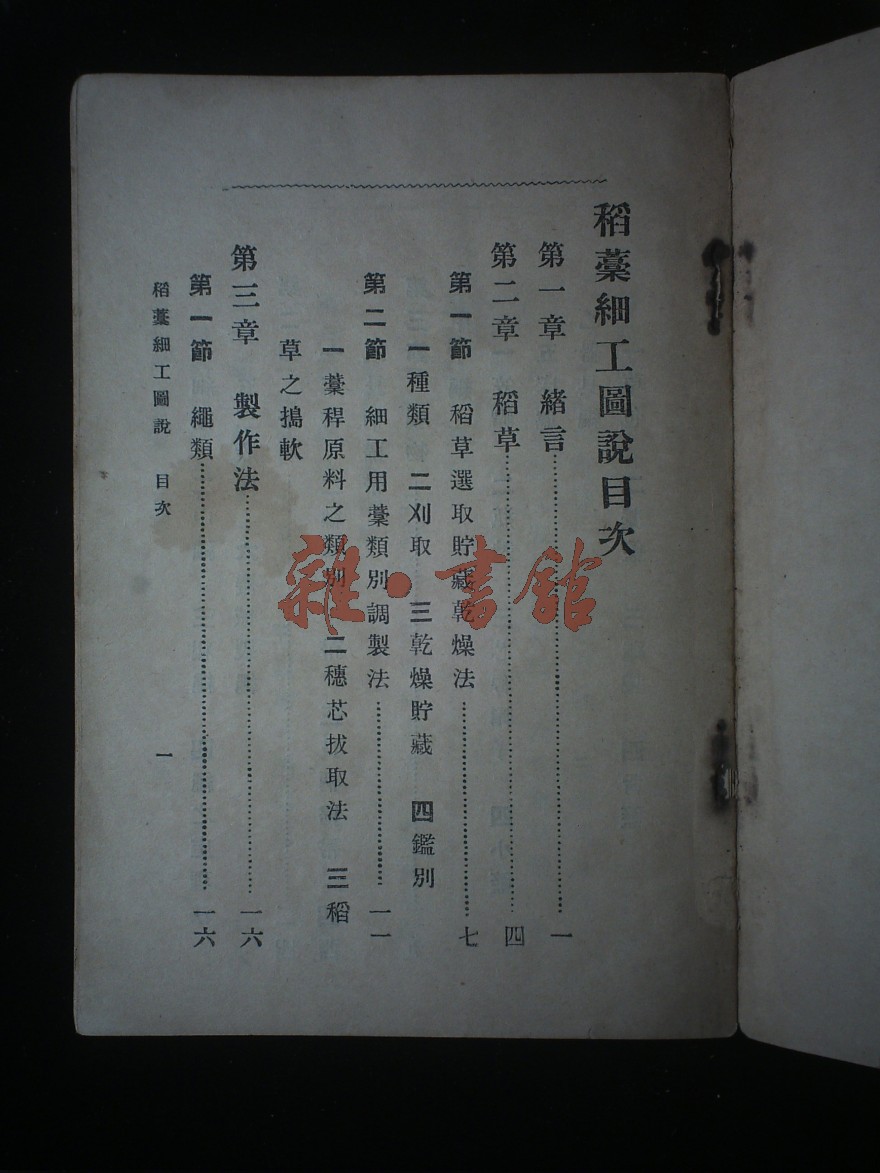 稻藁細工圖說目次
第一章 緒言……一
第二章 稻草……四
第一節 稻草選取貯藏乾燥法……七
一種類 二刈取 三乾燥貯藏 四鑑別
第二節 細工用藁類別調製法……一一
一藁稈原料之類別 二穗芯拔取法 三稻
草之搗軟
第三章 製作法……一六
第一節 繩類……一六
稻藁細工圖說 目次
一
雜·書館